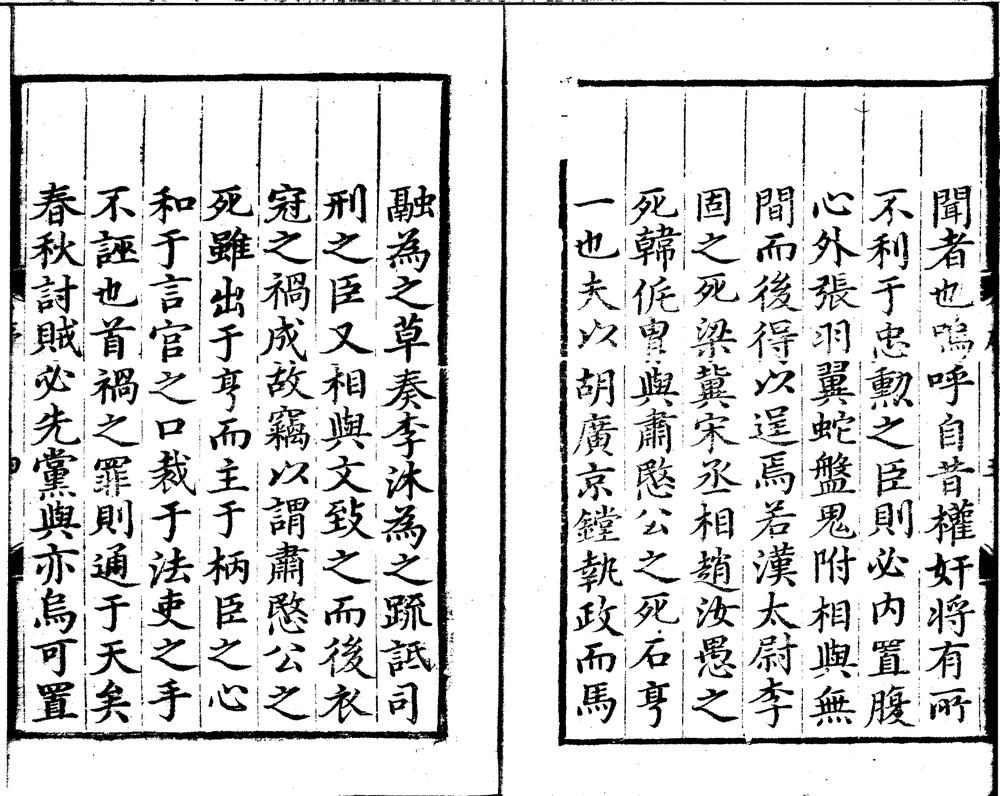 聞者也嗚呼自昔權奸将有所
不利于忠勳之臣則必内置腹
心外張羽翼蛇盤鬼附相與無
間而後得以逞焉若漢太尉李
固之死梁冀宋丞相趙汝愚之
死韓侂冑與肅愍公之死石亨
一也夫以胡廣京鏜執政而馬
融為之草奏李沐為之疏詆司
刑之臣又相與文致之而後衣
冠之禍成故竊以謂肅愍公之
死雖出于亨而主于柄臣之心
和于言官之口裁于法吏之手
不誣也首禍之罪則通于天矣
春秋討賊必先黨與亦烏可置